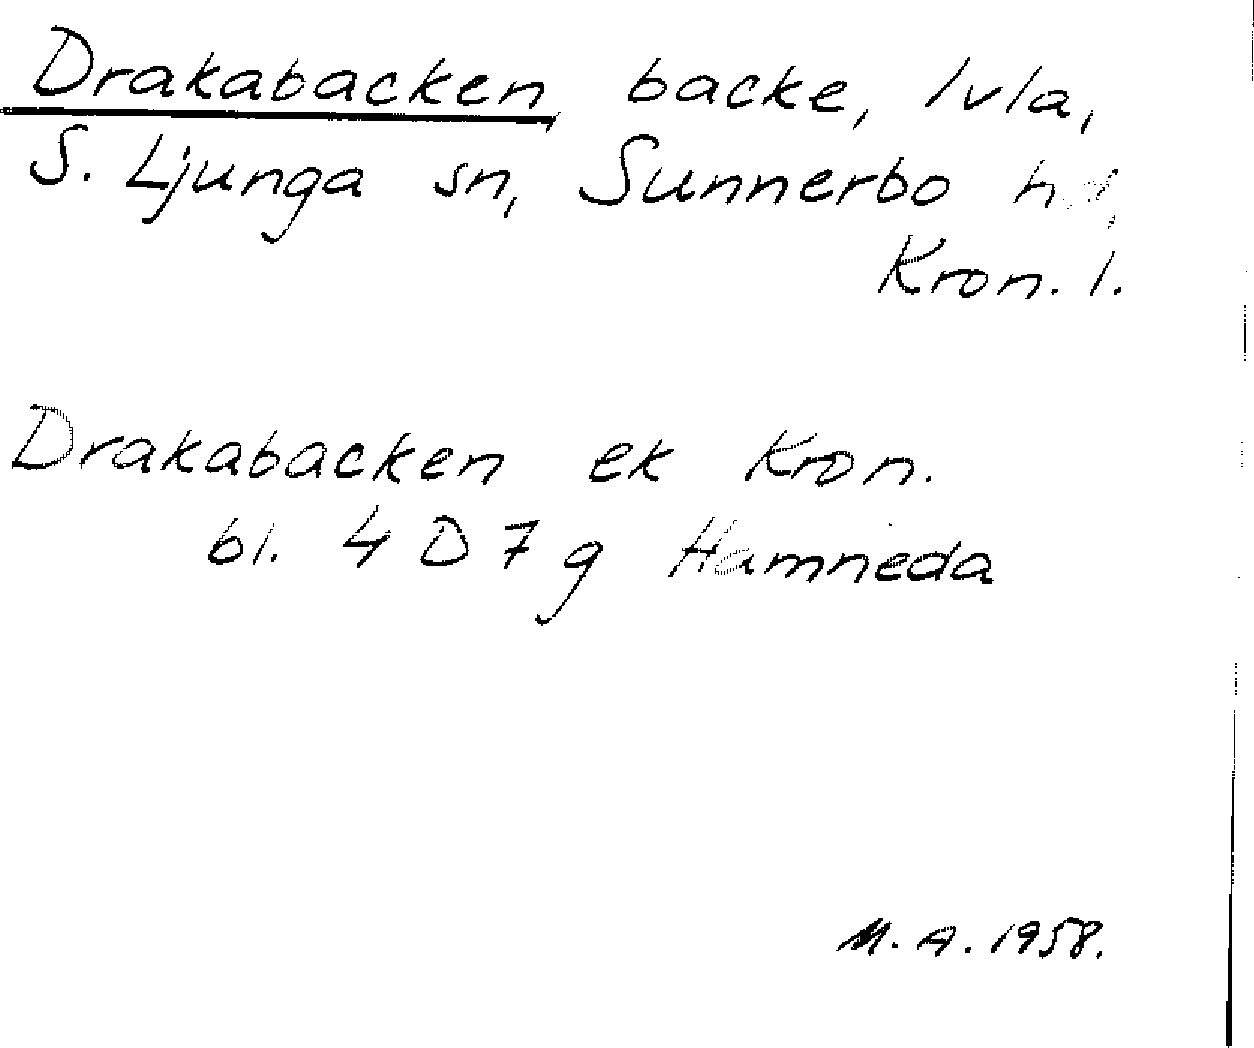 Drakabacken backe, Ivla,
S. Ljunga sn, Sunnerbo hd,
Kron. l.
Drakabacken ek Kron.
bl. 4 D 7 g Hamneda
M. A. 1958.